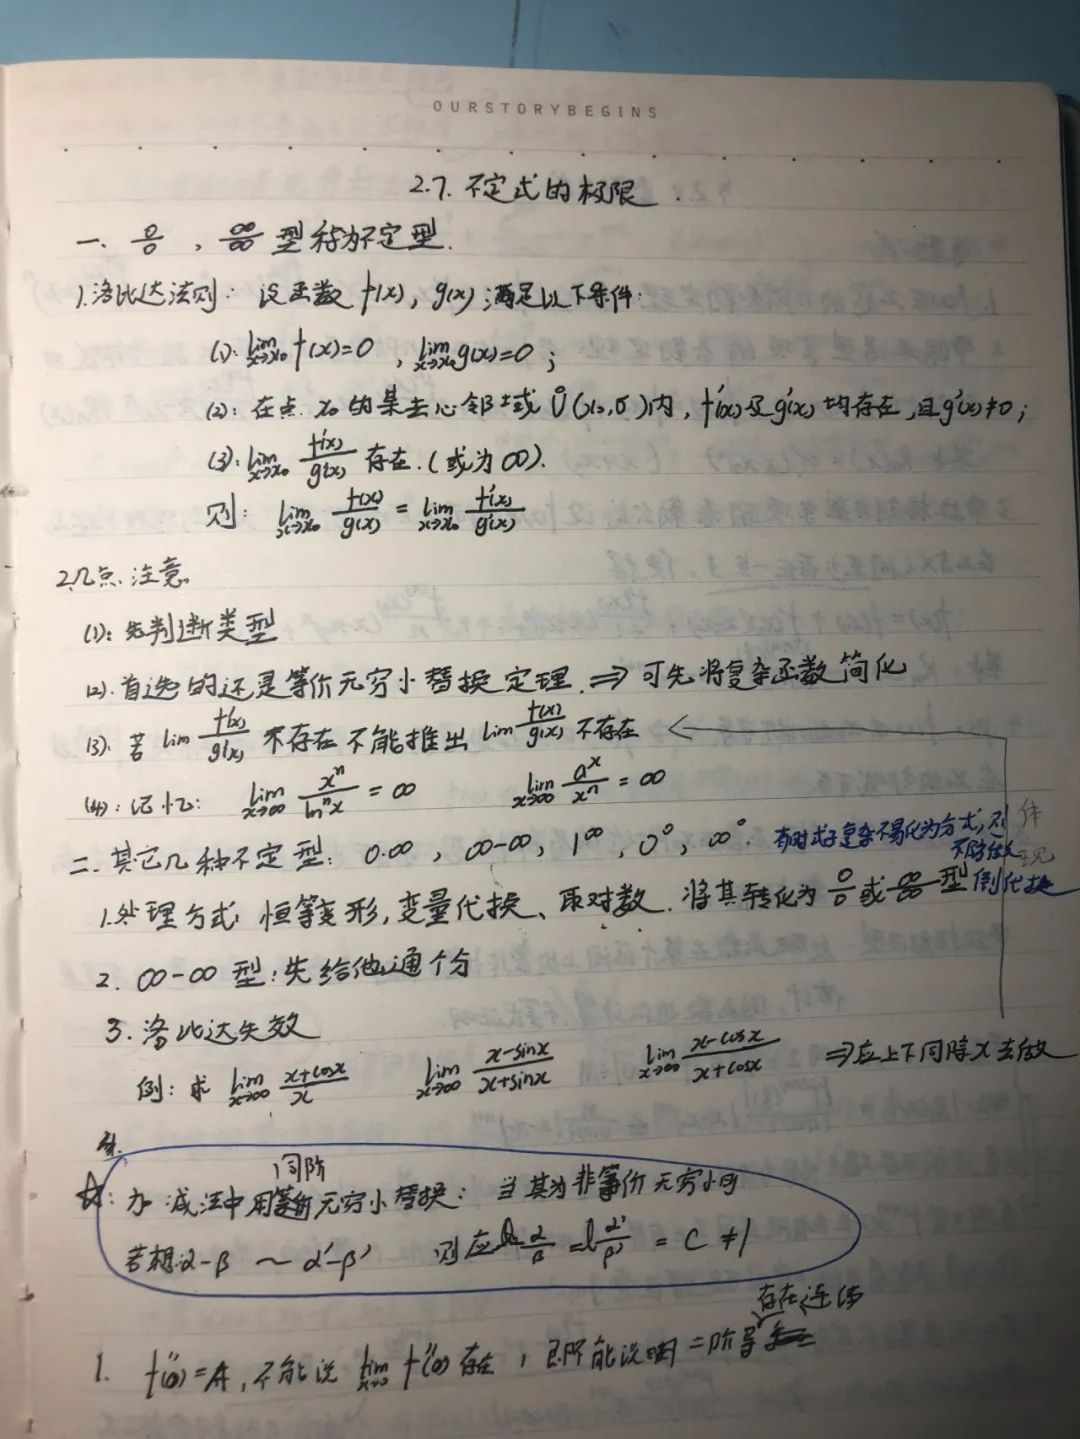 OURSTORYBEGINS
2.7. 不定式的极限.
一、0/0 , ∞/∞ 型称为不定型.
1.洛比达法则: 设函数 f(x), g(x) 满足以下条件:
(1): lim x→x₀ f(x)=0 , lim x→x₀ g(x)=0 ;
(2): 在点 x₀ 的某去心邻域 Ů(x₀,δ)内, f'(x)及g'(x) 均存在,且g'(x)≠0;
(3): lim x→x₀ f'(x)/g'(x) 存在.(或为∞).
则: lim x→x₀ f(x)/g(x) = lim x→x₀ f'(x)/g'(x)
2.几点注意
(1): 先判断类型
(2). 首选的还是等价无穷小替换定理. ⇒ 可先将复杂函数简化
(3). 若 lim f'(x)/g'(x) 不存在不能推出 lim f(x)/g(x) 不存在
(4): 记忆: lim x→∞ xⁿ/lnⁿx = ∞ lim x→∞ aˣ/xⁿ = ∞
二、其它几种不定型: 0·∞ , ∞-∞, 1^∞ , 0⁰, ∞⁰. 有时式子复杂不易化为分式,则
不防做
体现
1.处理方式: 恒等变形,变量代换、取对数. 将其转化为 0/0 或 ∞/∞ 型 倒代换
2. ∞-∞ 型: 先给他通个分
3. 洛比达失效
例: 求 lim x→∞ (x+cosx)/x lim x→∞ (x-sinx)/(x+sinx) lim x→∞ (x-cosx)/(x+cosx) ⇒应上下同除x去做
4.
同阶
☆: 加减法中用等价无穷小替换: 当其为非等价无穷小时
若想α-β ~ α'-β' 则应 l α/β = l α'/β' = C ≠1
存在连续
1. f''(0)=A, 不能说 lim x→0 f''(x) 存在 , 即不能说明二阶导